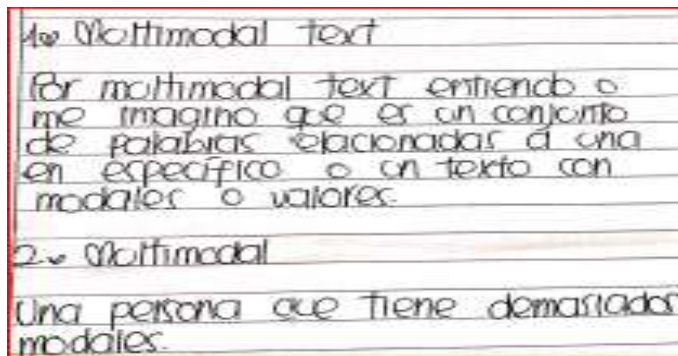 1. Multimodal text
Por multimodal text entiendo o
me imagino que es un conjunto
de palabras relacionadas a una
en específico o un texto con
modales o valores.
2. Multimodal
Una persona que tiene demasiados
modales.